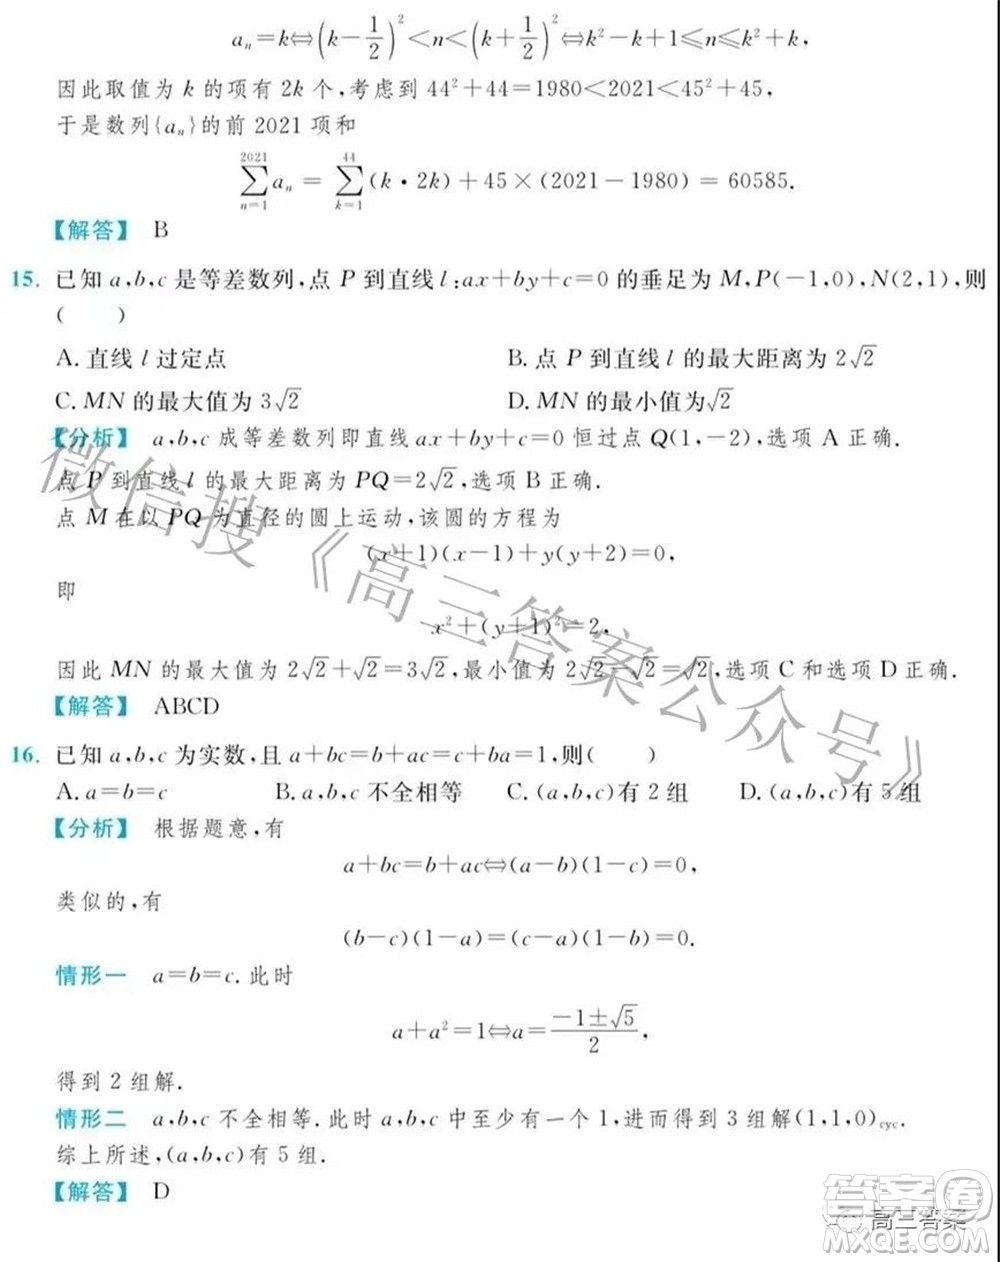 aₙ=k⇔(k-1/2)²<n<(k+1/2)²⇔k²-k+1≤n≤k²+k,
因此取值为 k 的项有 2k 个,考虑到 44²+44=1980<2021<45²+45,
于是数列{aₙ}的前 2021 项和
∑_{n=1}^{2021} aₙ = ∑_{k=1}^{44} (k·2k)+45×(2021-1980)=60585.
【解答】 B
15. 已知 a,b,c 是等差数列,点 P 到直线 l:ax+by+c=0 的垂足为 M,P(-1,0),N(2,1),则
( )
A. 直线 l 过定点 B. 点 P 到直线 l 的最大距离为 2√2
C. MN 的最大值为 3√2 D. MN 的最小值为√2
【分析】 a,b,c 成等差数列即直线 ax+by+c=0 恒过点 Q(1,-2),选项 A 正确.
点 P 到直线 l 的最大距离为 PQ=2√2,选项 B 正确.
点 M 在以 PQ 为直径的圆上运动,该圆的方程为
(x+1)(x-1)+y(y+2)=0,
即
x²+(y+1)²=2,
因此 MN 的最大值为 2√2+√2=3√2,最小值为 2√2-√2=√2,选项 C 和选项 D 正确.
【解答】 ABCD
16. 已知 a,b,c 为实数,且 a+bc=b+ac=c+ba=1,则( )
A. a=b=c B. a,b,c 不全相等 C. (a,b,c)有 2 组 D. (a,b,c)有 5 组
【分析】 根据题意,有
a+bc=b+ac⇔(a-b)(1-c)=0,
类似的,有
(b-c)(1-a)=(c-a)(1-b)=0.
情形一 a=b=c. 此时
a+a²=1⇔a=(-1±√5)/2,
得到 2 组解.
情形二 a,b,c 不全相等. 此时 a,b,c 中至少有一个 1,进而得到 3 组解(1,1,0)cyc.
综上所述,(a,b,c)有 5 组.
【解答】 D
微信搜《高三答案公众号》
答案圈
高三答案
MXQE.COM